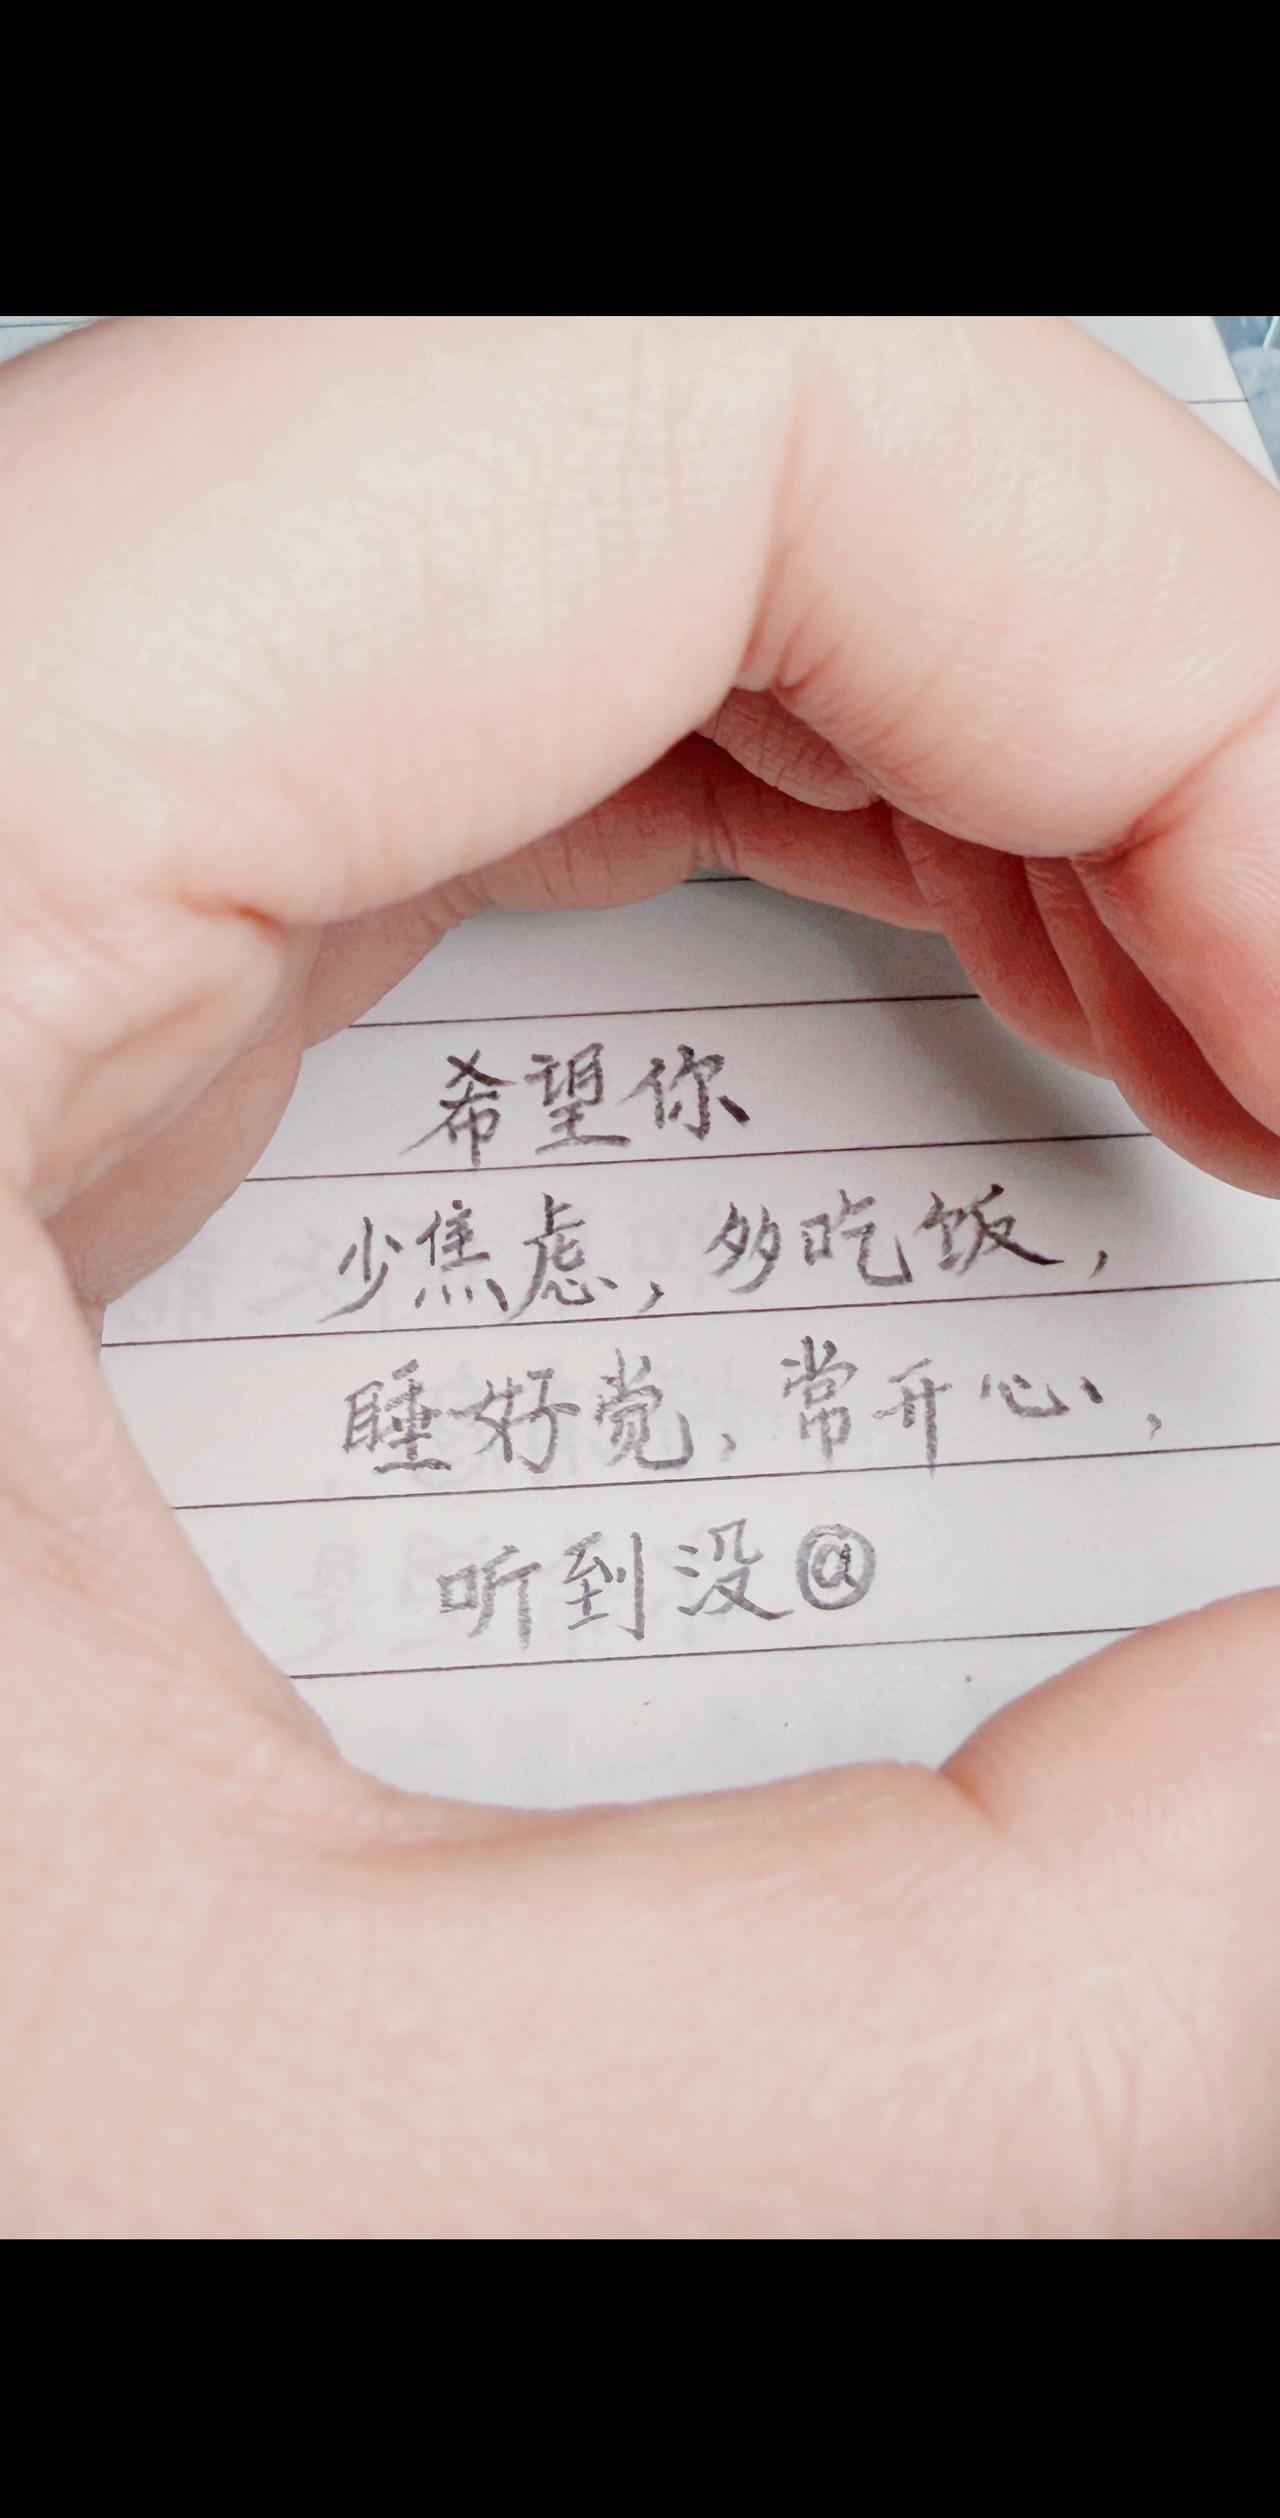 希望你
少焦虑，多吃饭，
睡好觉，常开心，
听到没@